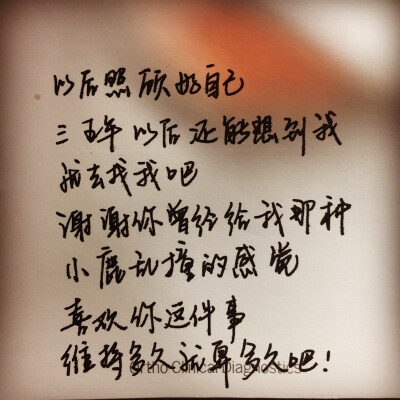 以后照顾好自己
三五年以后还能想到我
就去找我吧
谢谢你曾经给我那种
小鹿乱撞的感觉
喜欢你这件事
维持多久就算多久吧！
Ortho Clinical Diagnostics